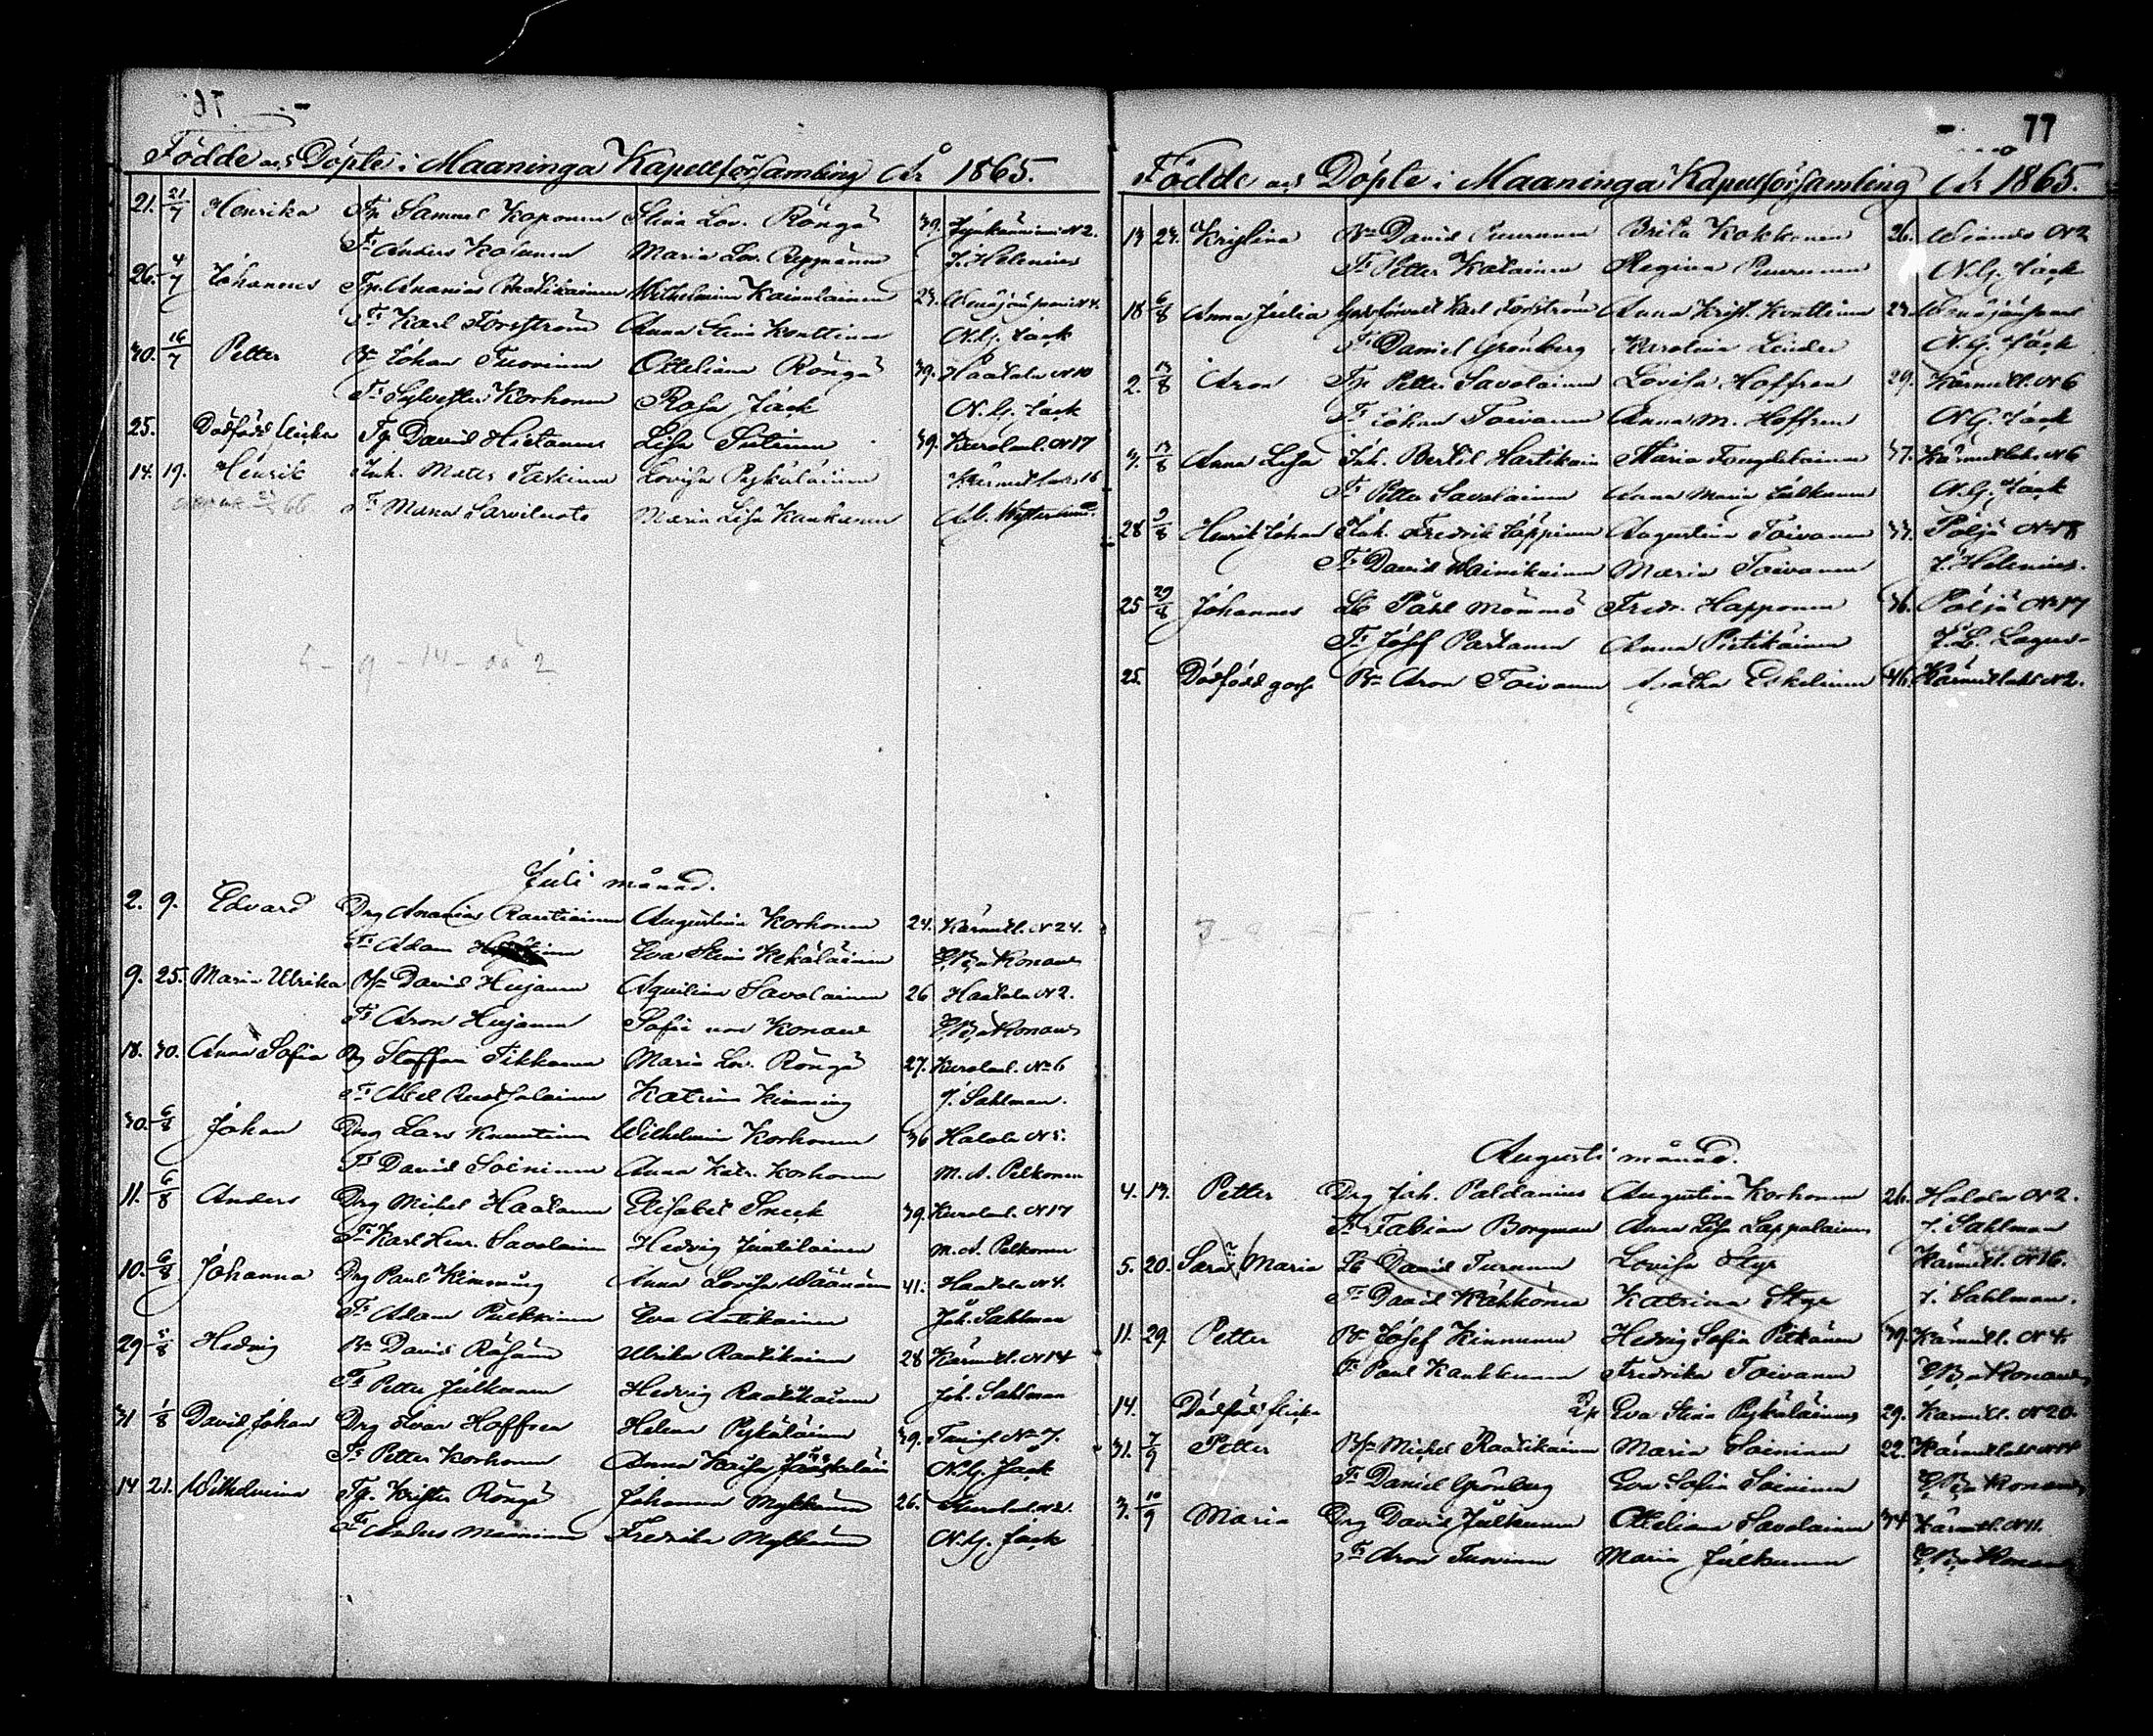 76
Födde och Döpte i Maaninga Kapellförsamling År 1865.
21. 21/7 Henrika Tp Samuel Koponen Stina Lov. Röngä 39. N2.
Fr Anders Maria Lov. J. Helenius
26. 4/7 Johannes Tp. Ananias Raatikainen Wilhelmina Kainulainen 23. N4.
Fr Karl Forsström Anna Stina Konttinen N.G. Jack
30. 16/7 Petter Bn Johan Tuovinen Otteliana Röngä 39. Haatala N10
Fr Sylvester Korhonen Rosa Jack N.G. Jack
25. Dödfödd flicka Tp David Hietanen Lisa 39. Kurolanl. N17
14. 19. Henrik Inh. Mats Taskinen Lovisa Pykäläinen Kärmetlaks 16
66. Fr Måns Sarviluoto Maria Lisa Kaukanen Westerlund
5 - 9 - 14 - 2
Juli månad.
2. 9. Edvard Drg Ananias Rautiainen Augustina Korhonen 24. Kärmetl. N24.
Fr Adam Eva Stina Kekäläinen
9. 25. Maria Ulrika Bn David Hujanen Aquilina Savolainen 26 Haatala N2.
Fr Aron Hujanen Sofie von Konow
18. 30. Anna Sofia Staffan Tikkanen Maria Lov. Röngä 27. Kurolanl. N6
Fr Abel Ruotsalainen Katrina Kimming J. Sahlman.
30. 6/8 Johan Drg Lars Knuutinen Wilhelmina Korhonen 36 Halola N5.
Fr David Soininen Anna Katr. Korhonen M. A. Pelkonen
11. 6/8 Anders Drg Michel Haatanen Elisabet Sneck 39. Kurolanl. N17
Fr Karl Henr. Savolainen Hedvig Juntilainen M. A. Pelkonen
10. 6/8 Johanna Drg Paul Kimming Anna Lovisa Väänänen 41. Haatala N4.
Fr Adam Pulkkinen Eva Antikainen Joh. Sahlman
29 5/8 Hedvig Bn David Räsänen Ulrika Raatikainen 28 Kärmetl. N14
Fr Petter Julkunen Hedvig Raatikainen Joh. Sahlman
31 1/8 David Johan Drg Ivar Hoffren Helena Pykäläinen 39. N7.
Fr Petter Korhonen Anna Kaisa Jääskeläin N.G. Jack
14 21. Wilhelmina Tp. Krister Röngä Johanna Mykkänen 26. Kurolanl. N2.
Fr Anders Manninen Fredrika Mykkänen N.G. Jack
77
Födde och Döpte i Maaninga Kapellförsamling År 1865.
13 23. Kristina Bn David Puurunen Brita Kokkonen 26. N2
Fr Petter Katainen Regina Puurunen N.G. Jack
18 6/8 Anna Julia Karl Forsström Anna Krist. Konttinen 23.
Fr Daniel Grönberg Karolina Linder N.G. Jack
2. 13/8 Aron Tp Petter Savolainen Lovisa Hoffren 29. Kärmetl. N6
Fr Johan Toivanen Anna M. Hoffren N.G. Jack
3. 13/8 Anna Lisa Inh. Bertil Hartikain Maria 37. Kärmetlaks N6
Fr Petter Savolainen Anna Maria Julkunen N.G. Jack
28 9/8 Henrik Johan Inh. Fredrik Augustina Toivanen 33. Pöljä N18
Fr David Wainikainen Maria Toivanen J. Helenius.
25 29/8 Johannes Påhl Mömmö Fredr. Happonen 36. Pöljä N17
Fr Josef Partanen Anna Pietikäinen J. L. Lagus
25. Dödfödd gosse Bn Aron Toivanen Agatha Eskelinen 46. Kärmetlaks N2.
Augusti månad.
4. 13. Petter Drg Joh. Paldanius Augustina Korhonen 26. Halola N2.
Fr Fabian Borgman Anna Lisa Lappalainen J. Sahlman
5. 20. Sara Maria David Turunen Lovisa Styr Kärmetl. N16.
Fr David Kähkönen Katrina Styr J. Sahlman.
11. 29. Petter Bn Josef Kinnunen Hedvig Sofia Pitkänen 39. Kärmetl. N4.
Fr Paul Kaukkunen Fredrika Toivanen
14. Dödfödd flicka Eva Stina Pykäläinen 29. Kärmetl. N20.
31. 7/9 Petter Bn Michel Raatikainen Maria Soininen 22. Kärmetlaks N14
Fr Daniel Grönberg Eva Sofia Soininen
3. 10/9 Maria Drg David Julkunen Otteliana Savolainen 34 Kärmetl. N11.
Fr Aron Tuovinen Maria Julkunen